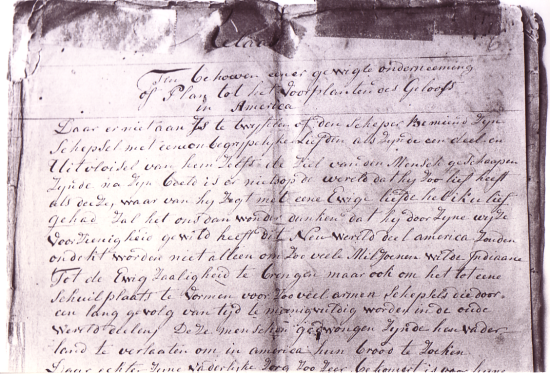 Ten behoeven eener gewigte onderneeming
of Plan tot het Voortplanten des Geloofs
in America
Daar er niet aan Is te twyffelen of den Schepper bemind Zyn
Schepsel met eene onbegrypelyke Liefde als Zynde een deel en
Uitvloisel van hem Zelfs de Ziel van den Mensch geschaapen
Zynde na Zyn beeld is er niets op de wereld dat hy Zoo lief heeft
als deeze waar van hy Zegt met eene Ewige liefde heb ik u lief
gehad Zal het ons dan wonder dunken dat hy door Zyne wyze
Voorzienigheid gewild heeft dit Nieu wereld deel america Zouden
ondekt worden niet alleen om Zoo veele Miljoenen wilde Indiaane
Tot de Ewig Zaaligheid te brengen maar ook om het tot eene
Schuilplaats te vormen voor Zoo veel armen Schepsels die door
een lang gevolg van tyd te menigvuldig worden in de oude
wereld deelen Deze menschen gedwongen Zynde hen vader
land te verlaaten om in america hun brood te Zoeken
Daar echter Zyne vaderlyke Zorg Zoo Zeer